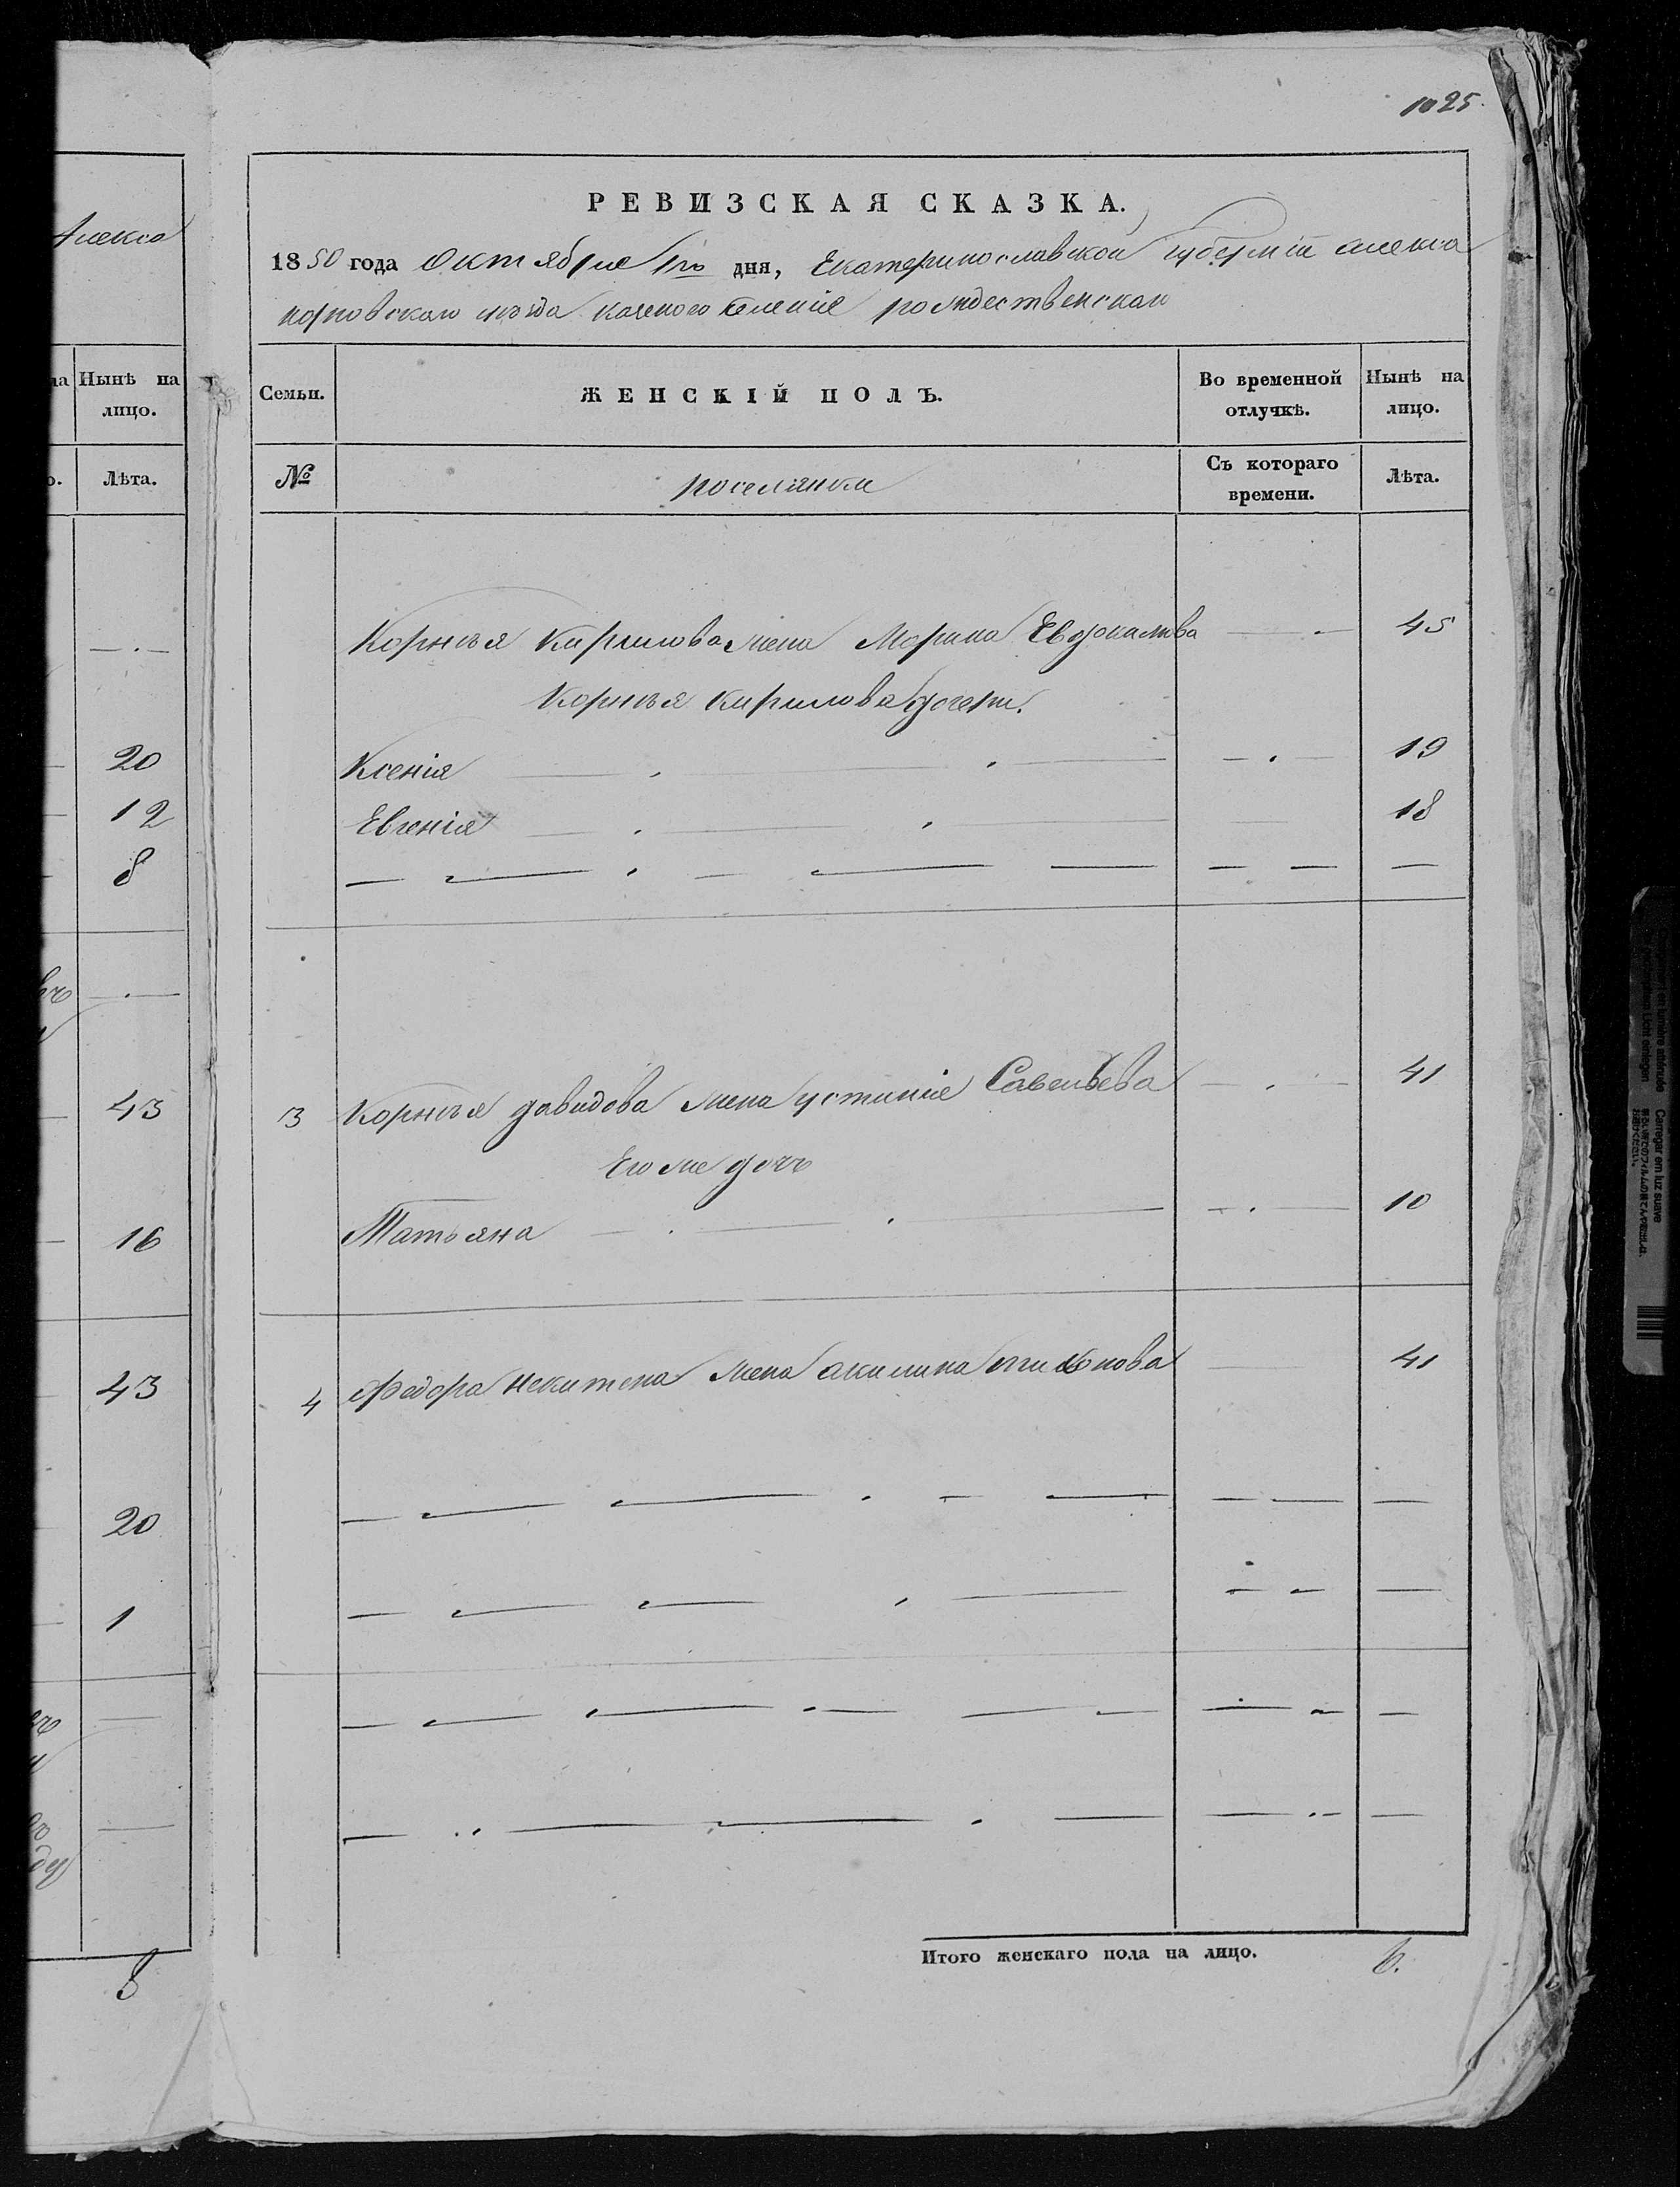 1025.
Алекса
РЕВИЗСКАЯ СКАЗКА.
1850 года Октября 1го дня, Екатеринославской губерніи Алекса
ндровскаго уѣзда казенного селенія рождественскаго
на Нынѣ на лицо.
Лѣта.
20
12
8
43
16
43
20
1
8
Семьи.
ЖЕНСКІЙ ПОЛЪ.
Во временной отлучкѣ.
Нынѣ на лицо.
№
поселянки
Съ котораго времени.
Лѣта.
Корнѣя Кирилова жена Марина Евдокимова 45
Корнѣя Кирилова дочери.
Ксенія 19
Евгенія 18
13 Корнѣя давидова жена устинія Савельева 41
Его же дочь
Татьяна 10
4 Федора Никитена жена акилина тихонова 41
Итого женскаго пола на лицо. 6.